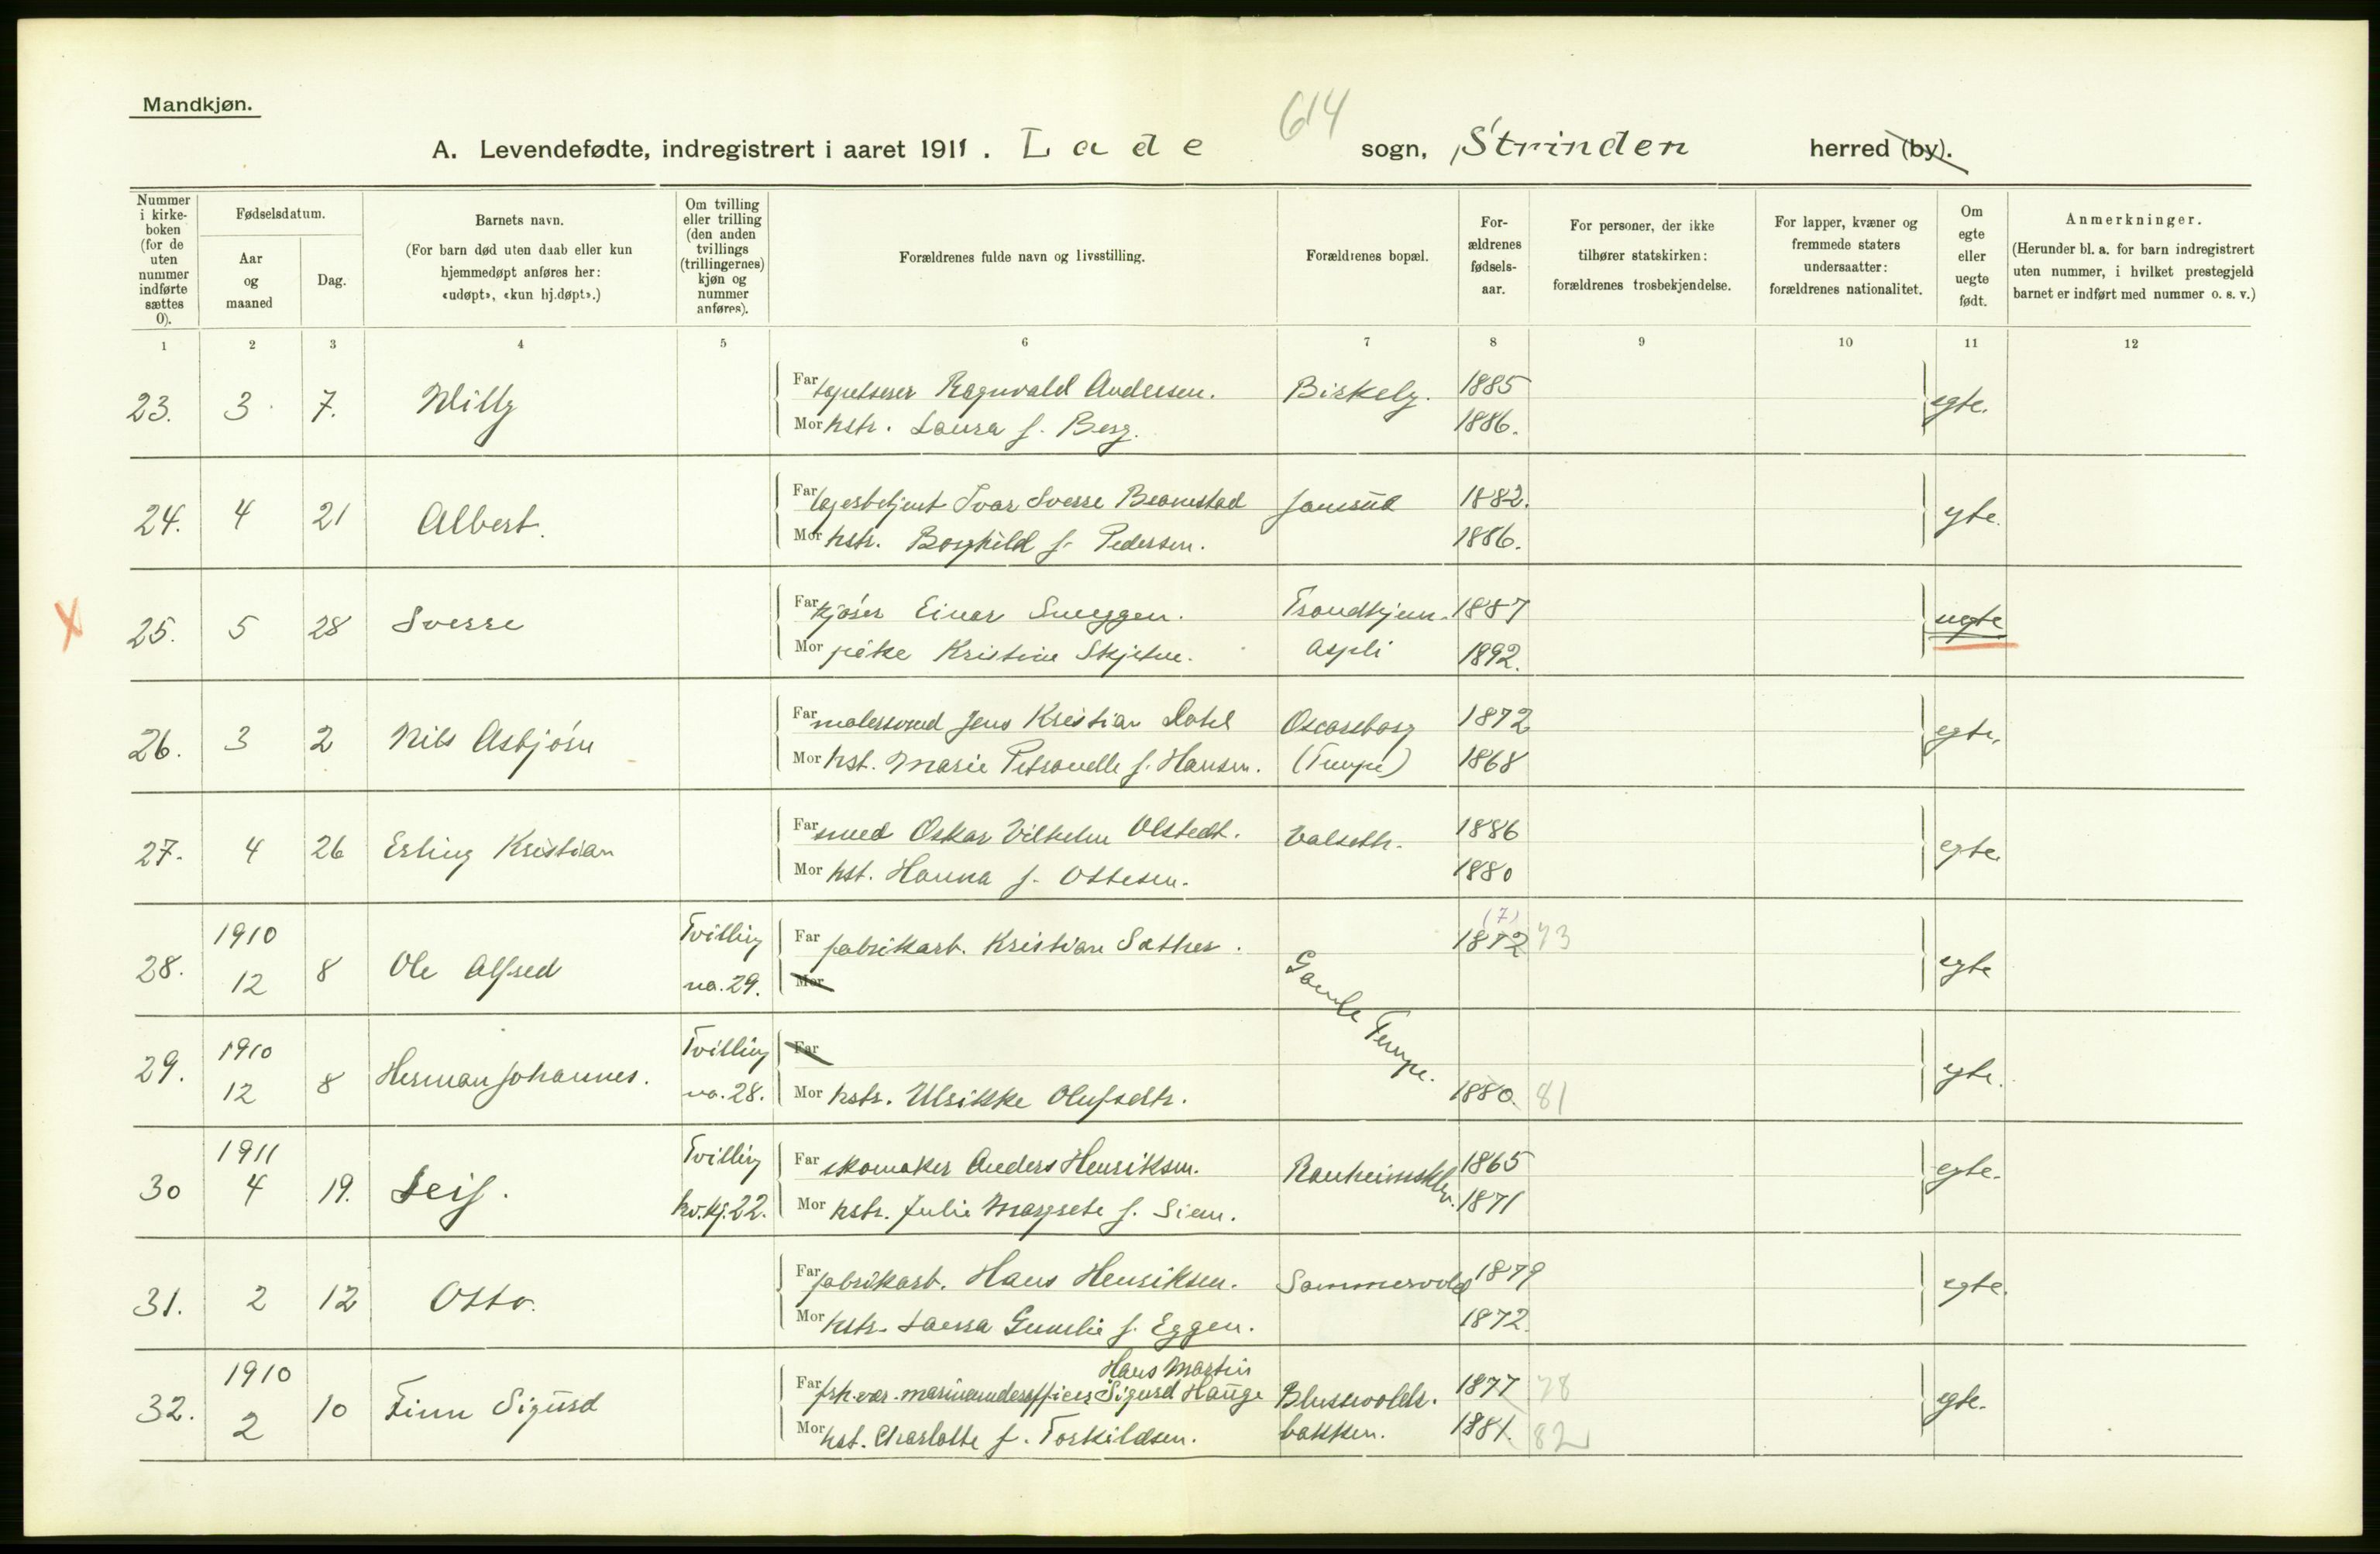 Mandkjøn.
614
A. Levendefødte, indregistrert i aaret 1911. Lade sogn, Strinden herred (by).
Nummer i kirke-boken (for de uten nummer indførte sættes 0).
Fødselsdatum.
Aar og maaned
Dag.
Barnets navn.
(For barn død uten daab eller kun hjemmedøpt anføres her: «udøpt», «kun hj.døpt».)
Om tvilling eller trilling (den anden tvillings (trillingernes) kjøn og nummer anføres).
Forældrenes fulde navn og livsstilling.
Forældrenes bopæl.
For-ældrenes fødsels-aar.
For personer, der ikke tilhører statskirken: forældrenes trosbekjendelse.
For lapper, kvæner og fremmede staters undersaatter: forældrenes nationalitet.
Om egte eller uegte født.
Anmerkninger.
(Herunder bl. a. for barn indregistrert uten nummer, i hvilket prestegjeld barnet er indført med nummer o. s. v.)
1 2 3 4 5 6 7 8 9 10 11 12
23. 3 7. Willy Far tapetserer Ragnvald Andersen. Birkely. 1885 egte.
Mor hstr. Laura f. Berg. 1886.
24. 4 21 Albert. Far lagerbetjent Ivar Sverre Bramstad 1882. egte.
Mor hstr. Borghild f. Pedersen. 1886.
X 25. 5 28 Sverre Far kjører Einar Sneggen. Trondhjem. 1887 uegte
Mor pike Kristine Skjetne. Aspli 1892.
26. 3 2 Nils Asbjørn Far malersvend Jens Kristian Dahl Oscarsborg 1872 egte.
Mor hst. Marie Petronelle f. Hansen. (Tempe) 1868
27. 4 26 Erling Kristian Far smed Oskar Vilhelm Olstedt. Valseth. 1886 egte.
Mor hst. Hanna f. Ottesen. 1880
28. 1910 12 8 Ole Alfred Tvilling no. 29. Far fabrikarb. Kristian Sæther. Gamle Tempe. (7) 1872 73 egte
Mor
29. 1910 12 8 Herman Johannes. Tvilling no. 28. Far egte.
Mor hstr. Ulrikke Olufsdtr. 1880. 81
30 1911 4 19. Leif. Tvilling kv.kj. 22. Far skomaker Anders Henriksen. Ranheimsklev. 1865 egte.
Mor hstr. Julie Margrete f. Siem. 1871
31. 2 12 Otto. Far fabrikarb. Hans Henriksen. Sommervold 1879 egte.
Mor hstr. Laura Gunelie f. Eggen. 1872.
Hans Martin
32. 1910 2 10 Finn Sigurd Far frh.v. marineunderofficer Sigurd Hauge Blussvolds. 1877 78 egte.
Mor hst. Charlotte f. Torkildsen. bakken. 1881. 82